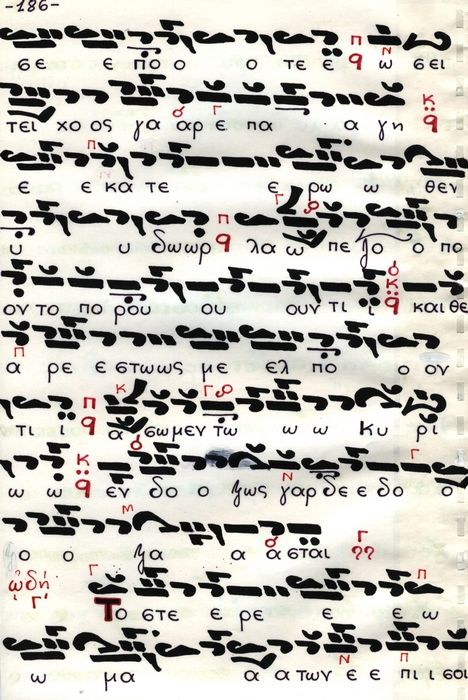 -186-
σε ε πο ο ο τε ε ω σει
τει χο ος γα αρ ε πα α γη
ε ε κα τε ε ρω ω θεν
υ υ δωωρ λα ω πε λο ο πο
ον το πο ρου ου ουν τι ϊ και θε
α ρε ε στωως με ελ πο ο ον
τι ϊ α σωμεν τω ω ω κυ ρι
ω ω εν δο ο ξως γαρ δε ε δο ο
ο ο ξα α α σται
ᾠδή Γ΄
Το στε ε ρε ε ε ω
ω μα α α των ε ε πι ι σοι